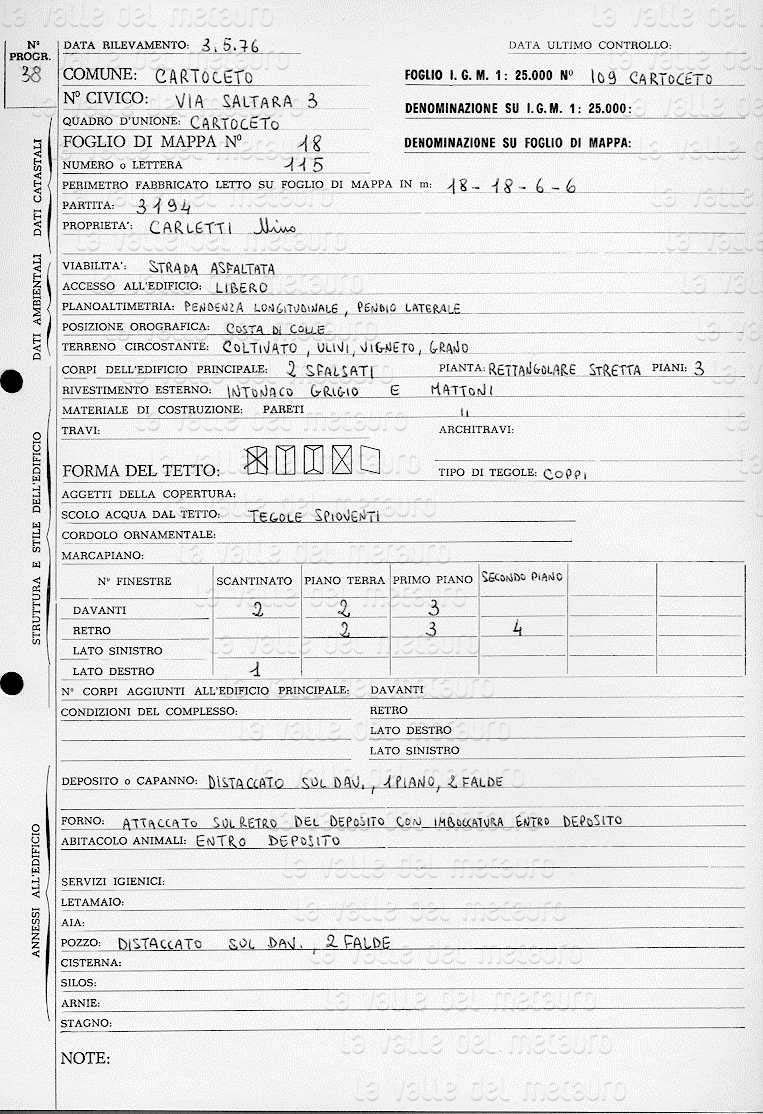 La valle del metauro
Nº PROGR. 38
DATA RILEVAMENTO: 3.5.76 DATA ULTIMO CONTROLLO:
COMUNE: CARTOCETO FOGLIO I. G. M. 1: 25.000 Nº 109 CARTOCETO
Nº CIVICO: VIA SALTARA 3 DENOMINAZIONE SU I. G. M. 1: 25.000:
QUADRO D'UNIONE: CARTOCETO
FOGLIO DI MAPPA Nº 18 DENOMINAZIONE SU FOGLIO DI MAPPA:
NUMERO o LETTERA 115
PERIMETRO FABBRICATO LETTO SU FOGLIO DI MAPPA IN m: 18-18-6-6
PARTITA: 3194
PROPRIETA': CARLETTI Nino
DATI CATASTALI
VIABILITA': STRADA ASFALTATA
ACCESSO ALL'EDIFICIO: LIBERO
PLANOALTIMETRIA: PENDENZA LONGITUDINALE, PENDIO LATERALE
POSIZIONE OROGRAFICA: COSTA DI COLLE
TERRENO CIRCOSTANTE: COLTIVATO, ULIVI, VIGNETO, GRANO
DATI AMBIENTALI
CORPI DELL'EDIFICIO PRINCIPALE: 2 SFALSATI PIANTA: RETTANGOLARE STRETTA PIANI: 3
RIVESTIMENTO ESTERNO: INTONACO GRIGIO E MATTONI
MATERIALE DI COSTRUZIONE: PARETI "
TRAVI: ARCHITRAVI:
FORMA DEL TETTO: TIPO DI TEGOLE: COPPI
AGGETTI DELLA COPERTURA:
SCOLO ACQUA DAL TETTO: TEGOLE SPIOVENTI
CORDOLO ORNAMENTALE:
MARCAPIANO:
Nº FINESTRE SCANTINATO PIANO TERRA PRIMO PIANO SECONDO PIANO
DAVANTI 2 2 3
RETRO 2 3 4
LATO SINISTRO
LATO DESTRO 1
Nº CORPI AGGIUNTI ALL'EDIFICIO PRINCIPALE: DAVANTI
CONDIZIONI DEL COMPLESSO: RETRO
LATO DESTRO
LATO SINISTRO
STRUTTURA E STILE DELL'EDIFICIO
DEPOSITO o CAPANNO: DISTACCATO SUL DAV., 1 PIANO, 2 FALDE
FORNO: ATTACCATO SUL RETRO DEL DEPOSITO CON IMBOCCATURA ENTRO DEPOSITO
ABITACOLO ANIMALI: ENTRO DEPOSITO
SERVIZI IGIENICI:
LETAMAIO:
AIA:
POZZO: DISTACCATO SUL DAV., 2 FALDE
CISTERNA:
SILOS:
ARNIE:
STAGNO:
ANNESSI ALL'EDIFICIO
NOTE: